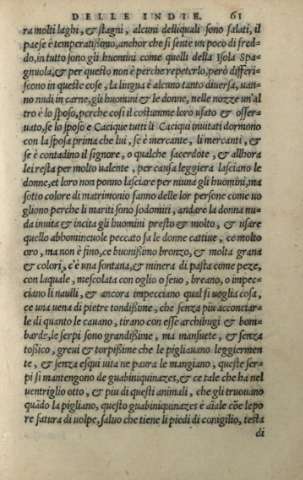 DELLE INDIE. 61
ra molti laghi, & stagni, alcuni delliquali sono salati, il
paese è temperatissimo, anchor che si sente un poco di fred-
do, in tutto sono gli huomini come quelli della Isola Spa-
gnuola, & per questo non è perche repeterlo, però differi-
scono in queste cose, la lingua è alcuno tanto diuersa, uan-
no nudi in carne, gli huomini & le donne, nelle nozze un'al
tro è lo sposo, perche cosi il costumme loro usato & osser-
uato, se lo sposo è Cacique tutti li Caciqui inuitati dormono
con la sposa prima che lui, se è mercante, li mercanti, &
se è contadino il signore, o qualche sacerdote, & allhora
lei resta per molto ualente, per causa leggiera lasciano le
donne, et loro non ponno lasciare per niuna gli huomini, ma
sotto colore di matrimonio fanno delle lor persone come uo
gliono perche li mariti sono sodomiti, andare la donna nu-
da inuita & incita gli huomini presto & molto, & usare
quello abbomineuole peccato fa le donne cattiue, ce molto
oro, ma non è fino, ce buonissimo bronzo, & molta grana
& colori, c'è una fontana, & minera di pasta come peze,
con laquale, mescolata con oglio o seuo, breano, o impec-
ciano li nauili, & ancora impecciano qual si uoglia cosa,
ce una uena di pietre tondissime, che senza piu acconciar-
le di quanto le cauano, tirano con esse archibugi & bom-
barde, le serpi sono grandissime, ma mansuete, & senza
tossico, greui & torpissime che le pigliauano leggiermen
te, & senza esquiuita ne paura le mangiano, queste ser-
pi si mantengono de guabiniquinazes, & ce tale che ha nel
uentriglio otto, & piu di questi animali, che gli truouano
quãdo la pigliano, questo guabiniquinazes è aĩale cõe lepo
re fatura di uolpe, saluo che tiene li piedi di coniglio, testa
di